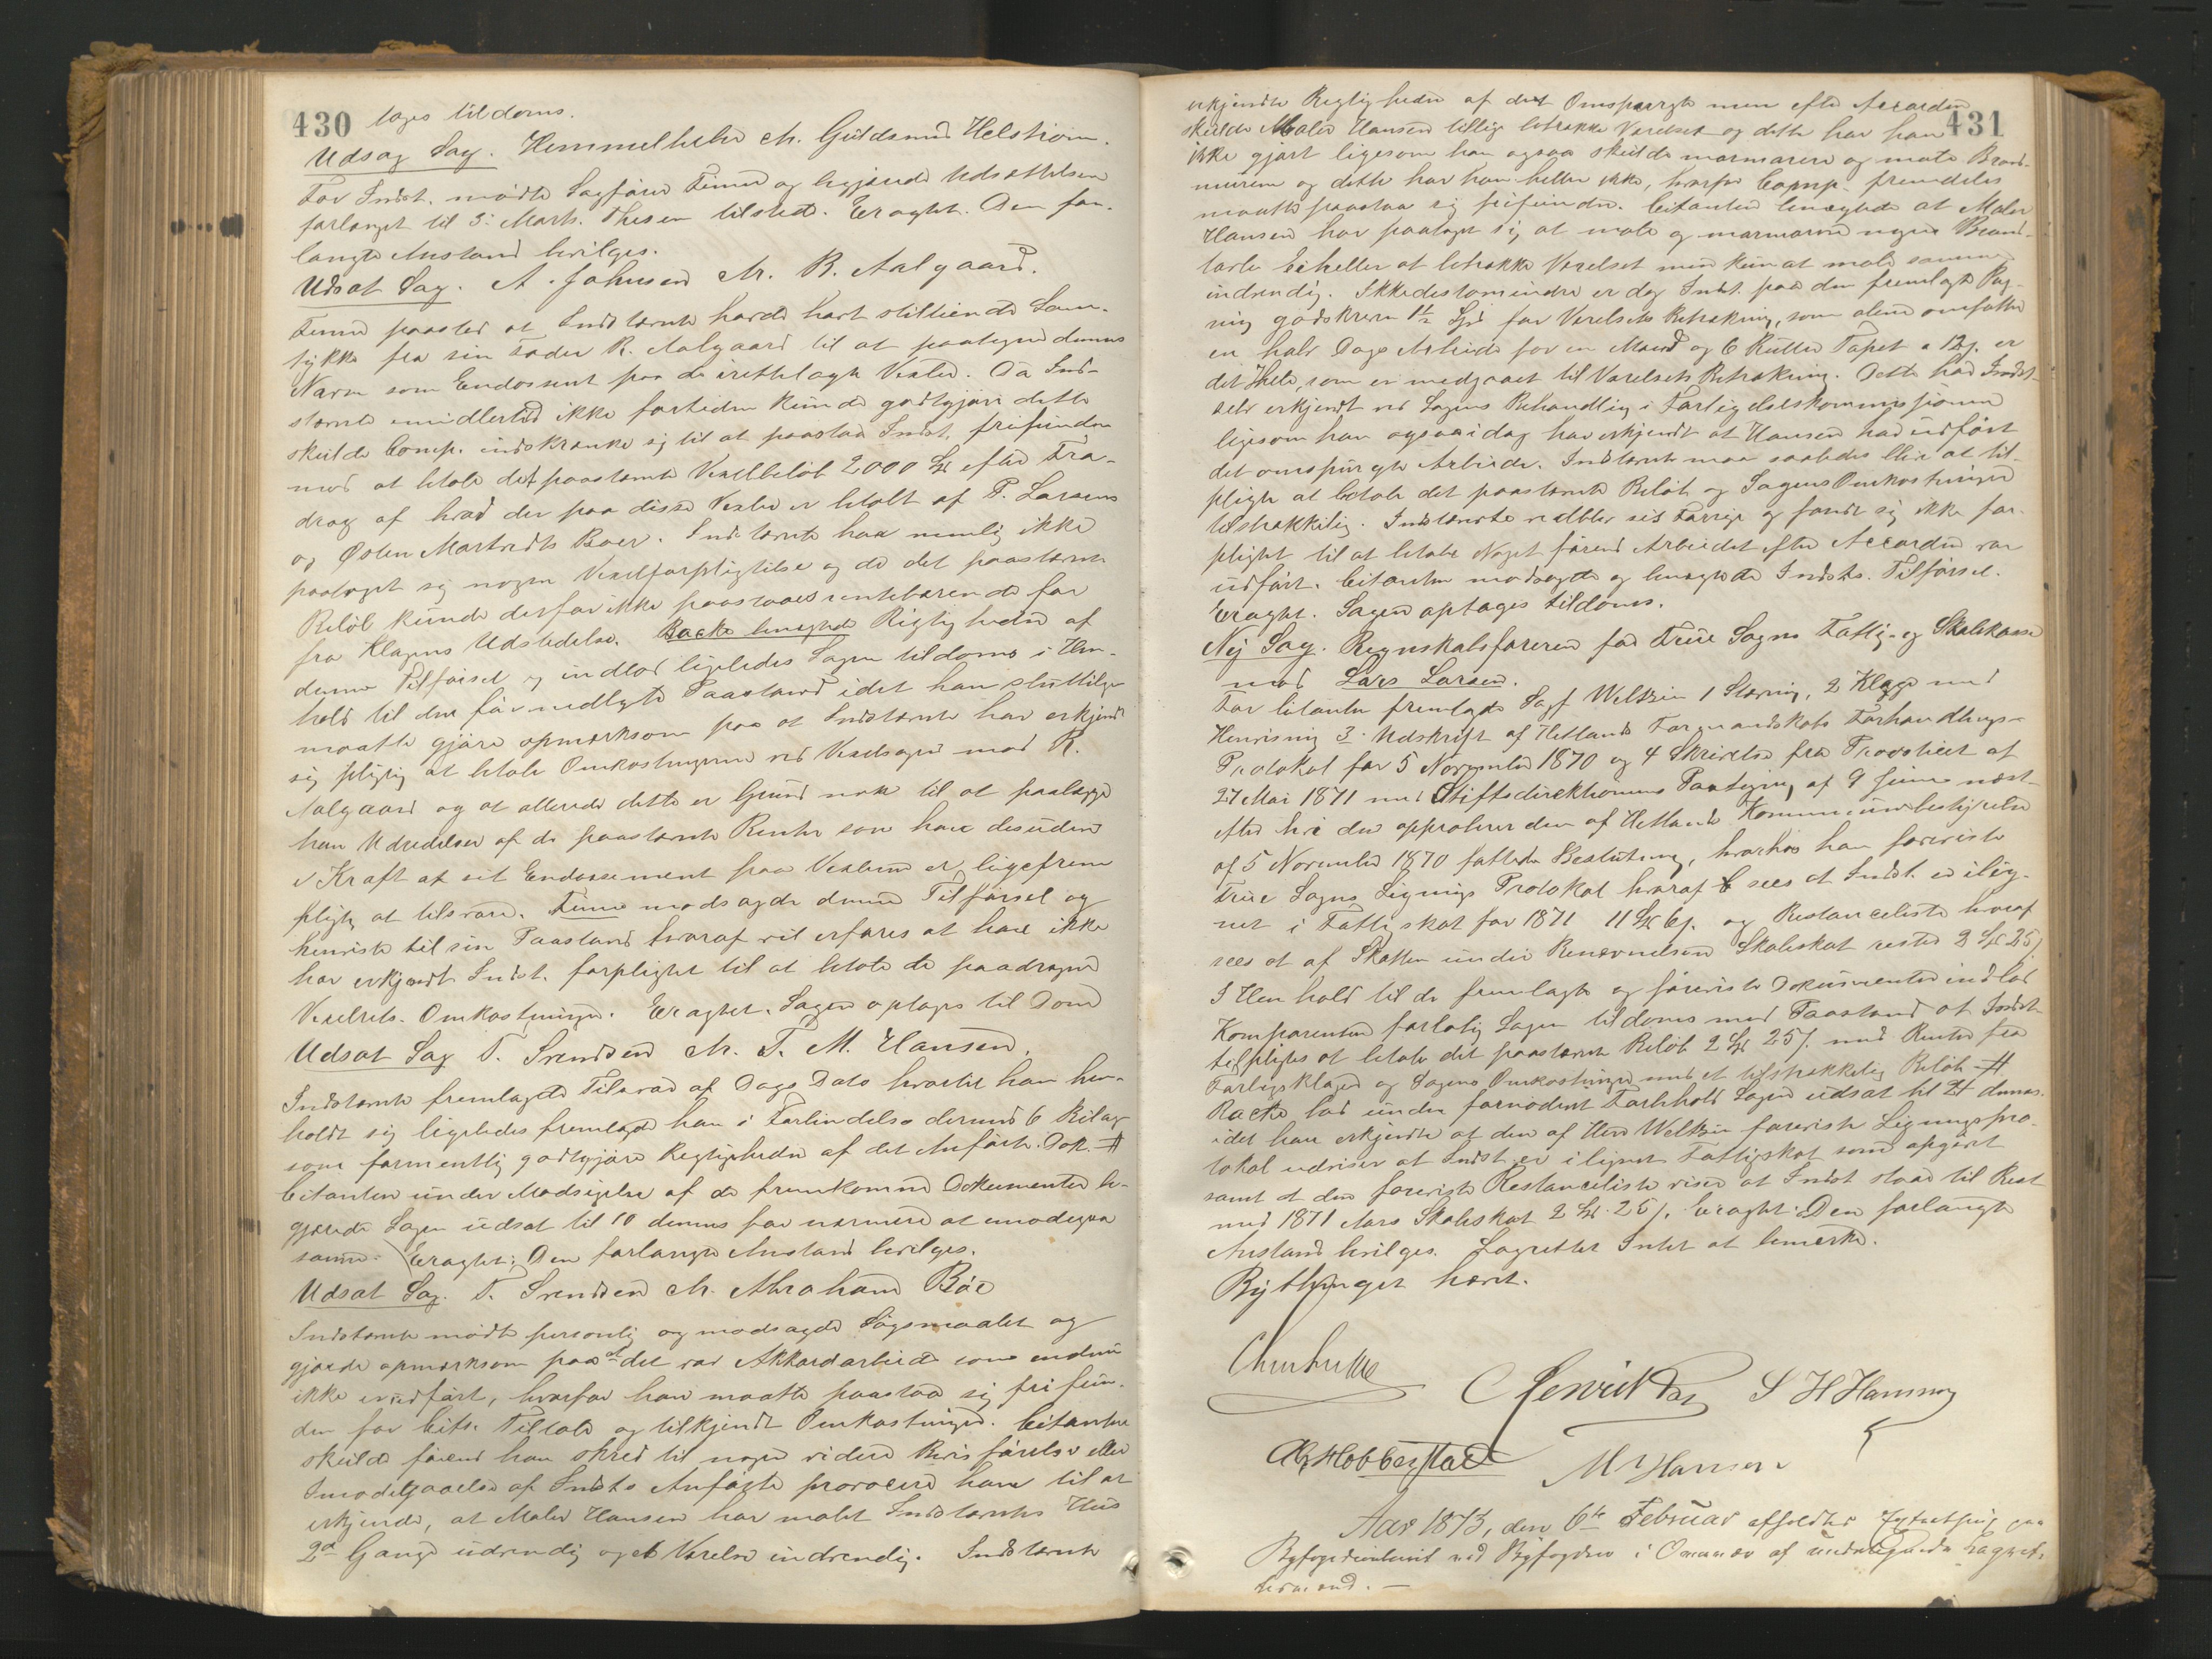 430
tages tildoms.
Udsaq Sag. Hemmelhebe ctr. Guldsmed Helstrøm.
For Indst. mødte Sagfører Finne og begjærede Udsættelsen
forlænget til 3. Marts. Thesen tilsted. Eragtet. Den for-
langte Anstand bevilges.
Udsat Sag. A. Johnsen ctr. R. Aalgaard.
Finne paasted at Indstævnte havde havt stiltiende Sam-
tykke fra sin Fader R. Aalgaard til at paategne dennes
Navn som Endossent paa de irettelagte Vexler. Da Ind-
stævnte imidlertid ikke fortiden kunde godtgjøre dette
skulde Comp. indskrænke sig til at paastaa Indst. frifunden
mod at betale det paastævnte Vexelbeløb 2000 Spd efter Fra-
drag af hvad der paa disse Vexler er betalt af P. Larsens
og Osten Martvedts Boer. Indstævnte har nemlig ikke
paataget sig nogen Vexelforpligtelse og da det paastævnte
Beløb kunde derfor ikke paastaaes rentebærende før
fra Klagens Udstedelse. Racke benegtede Rigtigheden af
denne Tilførsel og indlod ligeledes Sagen tildoms i Hen-
hold til den før nedlagte Paastand idet han sluttelig
maatte gjøre opmærksom paa at Indstævnte har erkjendt
sig pligtig at betale Omkostningerne ved Vexelsagen mod R.
Aalgaard og at allerede dette er Grund nok til at paalægge
ham Udredelsen af de paastævnte Renter som han desuden
i Kraft af sit Endossement paa Vexlerne er ligefrem
pligtig at tilsvare. Finne modsagde denne Tilførsel og
henviste til sin Paastand hvoraf vil erfares at han ikke
har erkjendt Indst. forpligtet til at betale de paadragne
Vexelrets-Omkostninger. Eragtet. Sagen optages til Dom
Udsat Sag T. Svendsen ctr. T. M. Hansen.
Indstævnte fremlagde Tilsvar af Dags Dato hvortil han hen-
holdt sig ligeledes fremlagde han i Forbindelse dermed 6 Bilag
som formentlig godtgjøre Rigtigheden af det Anførte. Dok. #
Citanten under Modsigelse af de fremkomne Dokumenter be-
gjærede Sagen udsat til 10 dennes for nærmere at imødegaa
samme. Eragtet: Den forlangte Anstand bevilges.
Udsat Sag. T. Svendsen ctr. Abraham Bøe
Indstævnte mødte personlig og modsagde Søgsmaalet og
gjorde opmærksom paa at det var Akkordarbeide som endnu
ikke er udført, hvorfor han maatte paastaa sig frifun-
den for Cits. Tiltale og tilkjendt Omkostninger. Citanten
skulde førend han skred til nogen videre Bevisførelse eller
Imødegaaelse af Indsts Anførte provocere ham til at
erkjende, at Maler Hansen har malet Indstævntes Hus
2de Gange udvendig og et Værelse indvendig. Indstævnte
431
erkjendte Rigtigheden af det Omspurgte men efter Accorden
skulde Maler Hansen tillige betrække Værelset og dette har han
ikke gjort ligesom han ogsaa skulde marmorere og male Brand-
murene og dette har han heller ikke, hvorfor Comp. fremdeles
maatte paastaa sig frifunden. Citanten benegtede at Maler
Hansen har paataget sig at male og marmorere nogen Brand-
tavle Eiheller at betrække Værelset men kun at male samme
indvendig. Ikkedestomindre er dog Indst. paa den fremlagte Reg-
ning godskreven 1½ Spd for Værelsets Betrækning, som alene omfatter
en halv Dags Arbeide for en Mand og 6 Ruller Tapet a 12ẞ. er
det Hele, som er medgaaet til Værelsets Betrækning. Dette har Indst.
selv erkjendt ved Sagens Behandling i Forligelseskommissionen
ligesom han ogsaa idag har erkjendt at Hansen har udført
det omspurgte Arbeide. Indstævnte maa saaledes blive at til-
pligte at betale det paastævnte Beløb og Sagens Omkostninger
tilstrækkelig. Indstævnte vedblev sit Forrige og fandt sig ikke for-
pligtet til at betale Noget førend Arbeidet efter Accorden var
udført. Citanten modsagde og benegtede Indsts. Tilførsel.
Eragtet. Sagen optages tildoms.
Ny Sag. Regnskabsføreren for Frue Sogns Fattig- og Skolekasse
mod Lars Larsen.
For Citanten fremlagde Sagf Weltzin 1 Stævning, 2 Klage med
Henvisning 3. Udskrift af Hetlands Formandskabs Forhandlings-
Protokol for 5 November 1870 og 4 Skrivelse fra Provstiet af
27 Mai 1871 med Stiftsdirektionens Paategning af 9 Juni næst-
efter hvi den approberer den af Hetlands Kommunebestyrelse
af 5 November 1870 fattede Beslutning, hvorhos han foreviste
Frue Sogns Lignings Protokol hvoraf sees at Indst. er ilig-
net i Fattigskat for 1871 11 Spd 6ẞ. og Restanceliste hvoraf
sees at af Skatten under Benævnelsen Skoleskat rester 2 Spd 25ẞ
I Henhold til de fremlagte og foreviste Dokumenter indlod
Komparenten forløbig Sagen tildoms med Paastand at Indst
tilpligtes at betale det paastævnte Beløb 2 Spd 25ẞ. med Renter fra
Forligsklagen og Sagens Omkostninger med et tilstrækkelig Beløb #
Racke lod under fornødent Forbehold Sagen udsat til 24 dennes.
idet han erkjendte at den af Herr Weltzin foreviste Ligningspro-
tokol udviser at Indst er ilignet Fattigskat som opgivet
samt at den foreviste Restanceliste viser at Indst staar til Rest
med 1871 Aars Skoleskat 2 Spd. 25ẞ. Eragtet: Den forlangte
Anstand bevilges. Lagrettet Intet at bemærke.
Bythinget hævet.
S H Hansen
M Hansen
Aar 1873, den 6te Februar afholdtes paa
ved Byfogden i af undertegnede Lagrettes-